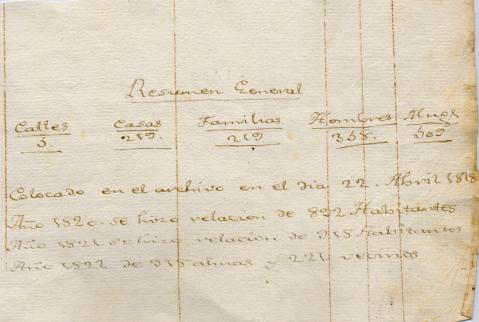 Resumen General
Calles Casas Familias Hombres Muge
5. 219. 219 355. 509
Colocado en el archivo en el dia 22. Abril 1818
Año 182 se hizo relacion de 892 Habitantes
Año 1821 se hizo relacion de 915 Habitantes
Año 1822 de 915 almas y 221 vecinos